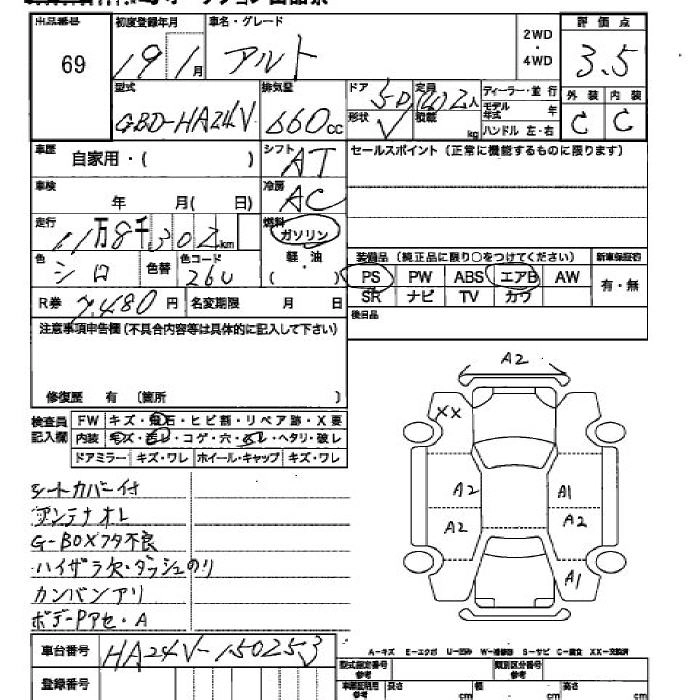 出品番号 初度登録年月 車名・グレード 2WD・4WD 評価点
69 19 1月 アルト 3.5
型式 排気量 ドア 5D 定員 (4)2人 ディーラー・並行 外装 内装
GBD-HA24V 660cc 形状 V 積載 kg モデル年式 年 C C
ハンドル 左・右
車歴 自家用・( ) シフト AT セールスポイント(正常に機能するものに限ります)
車検 年 月( 日) 冷房 AC
走行 11万8千302km 燃料 ガソリン
色 シロ 色替 色コード 26U 軽・油 ( )
装備品 (純正品に限り○をつけてください) 新車保証書
PS PW ABS エアB AW 有・無
SR ナビ TV カワ
R券 7,480円 名変期限 月 日 後日品
注意事項申告欄(不具合内容等は具体的に記入して下さい)
修復歴 有 〔箇所 〕
検査員記入欄 FW キズ・飛石・ヒビ割・リペア跡・X要
内装 キズ・ヨレ・コゲ・穴・スレ・ヘタリ・破レ
ドアミラー キズ・ワレ ホイール・キャップ キズ・ワレ
シートカバー付
アンテナオレ
G-BOXフタ不良
ハイザラ欠・ダッシュのり
カンバンアリ
ボデーPアセ・A
A2
XX
A2 A1
A2 A2
A1
車台番号 HA24V-150253
登録番号
A-キズ E-エクボ U-凹み W-補修跡 S-サビ C-腐食 XX-交換済
型式指定番号 参考 類別区分番号 参考
長さ cm 幅 cm 高さ cm